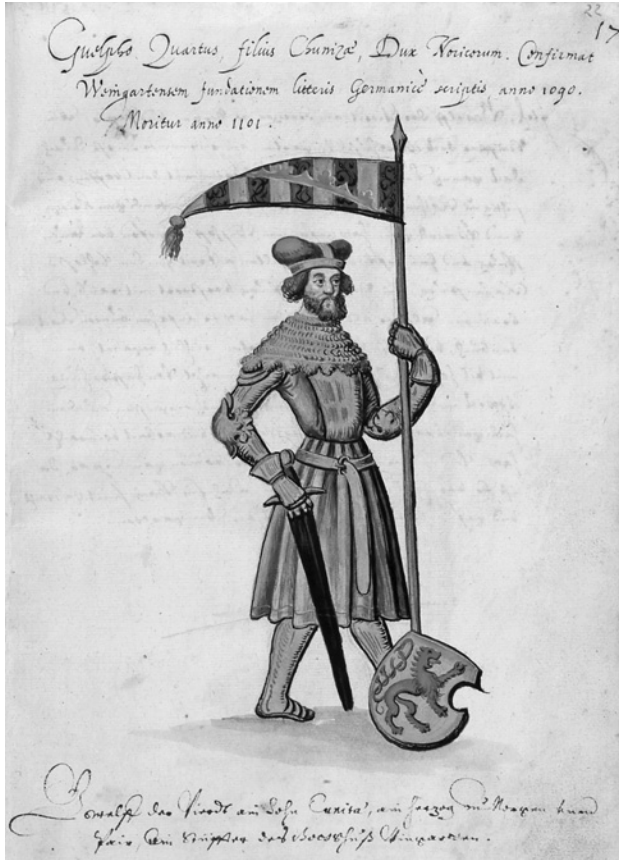 22
17
Guelpho Quartus, filius Chunizæ, Dux Noricorum. Confirmat
Weingartensem fundationem litteris Germanicè scriptis anno 1090.
Moritur anno 1101.
Gwelff der Vierdt ain Sohn Cunita, ain Herzog zu
Bair, ain Stüffter des Gottshuß Weingarten.